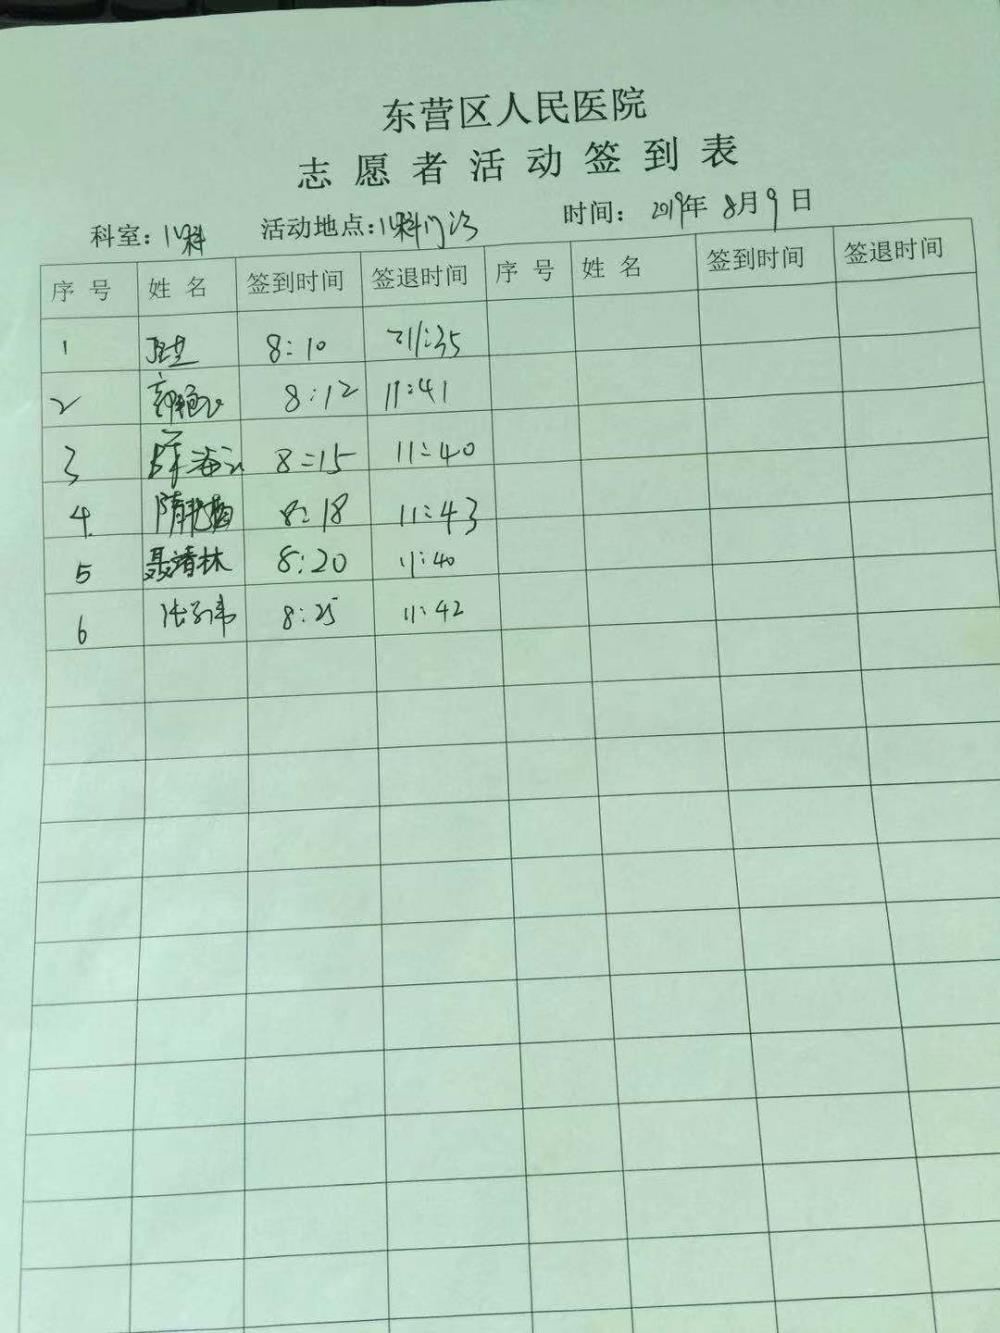 东营区人民医院
志愿者活动签到表
科室：儿科 活动地点：儿科门诊 时间：2019年8月9日
序号 姓名 签到时间 签退时间 序号 姓名 签到时间 签退时间
1 8:10 11:35
2 8:12 11:41
3 薛海 8:15 11:40
4 隋 8:18 11:43
5 聂清林 8:20 11:40
6 张 8:25 11:42